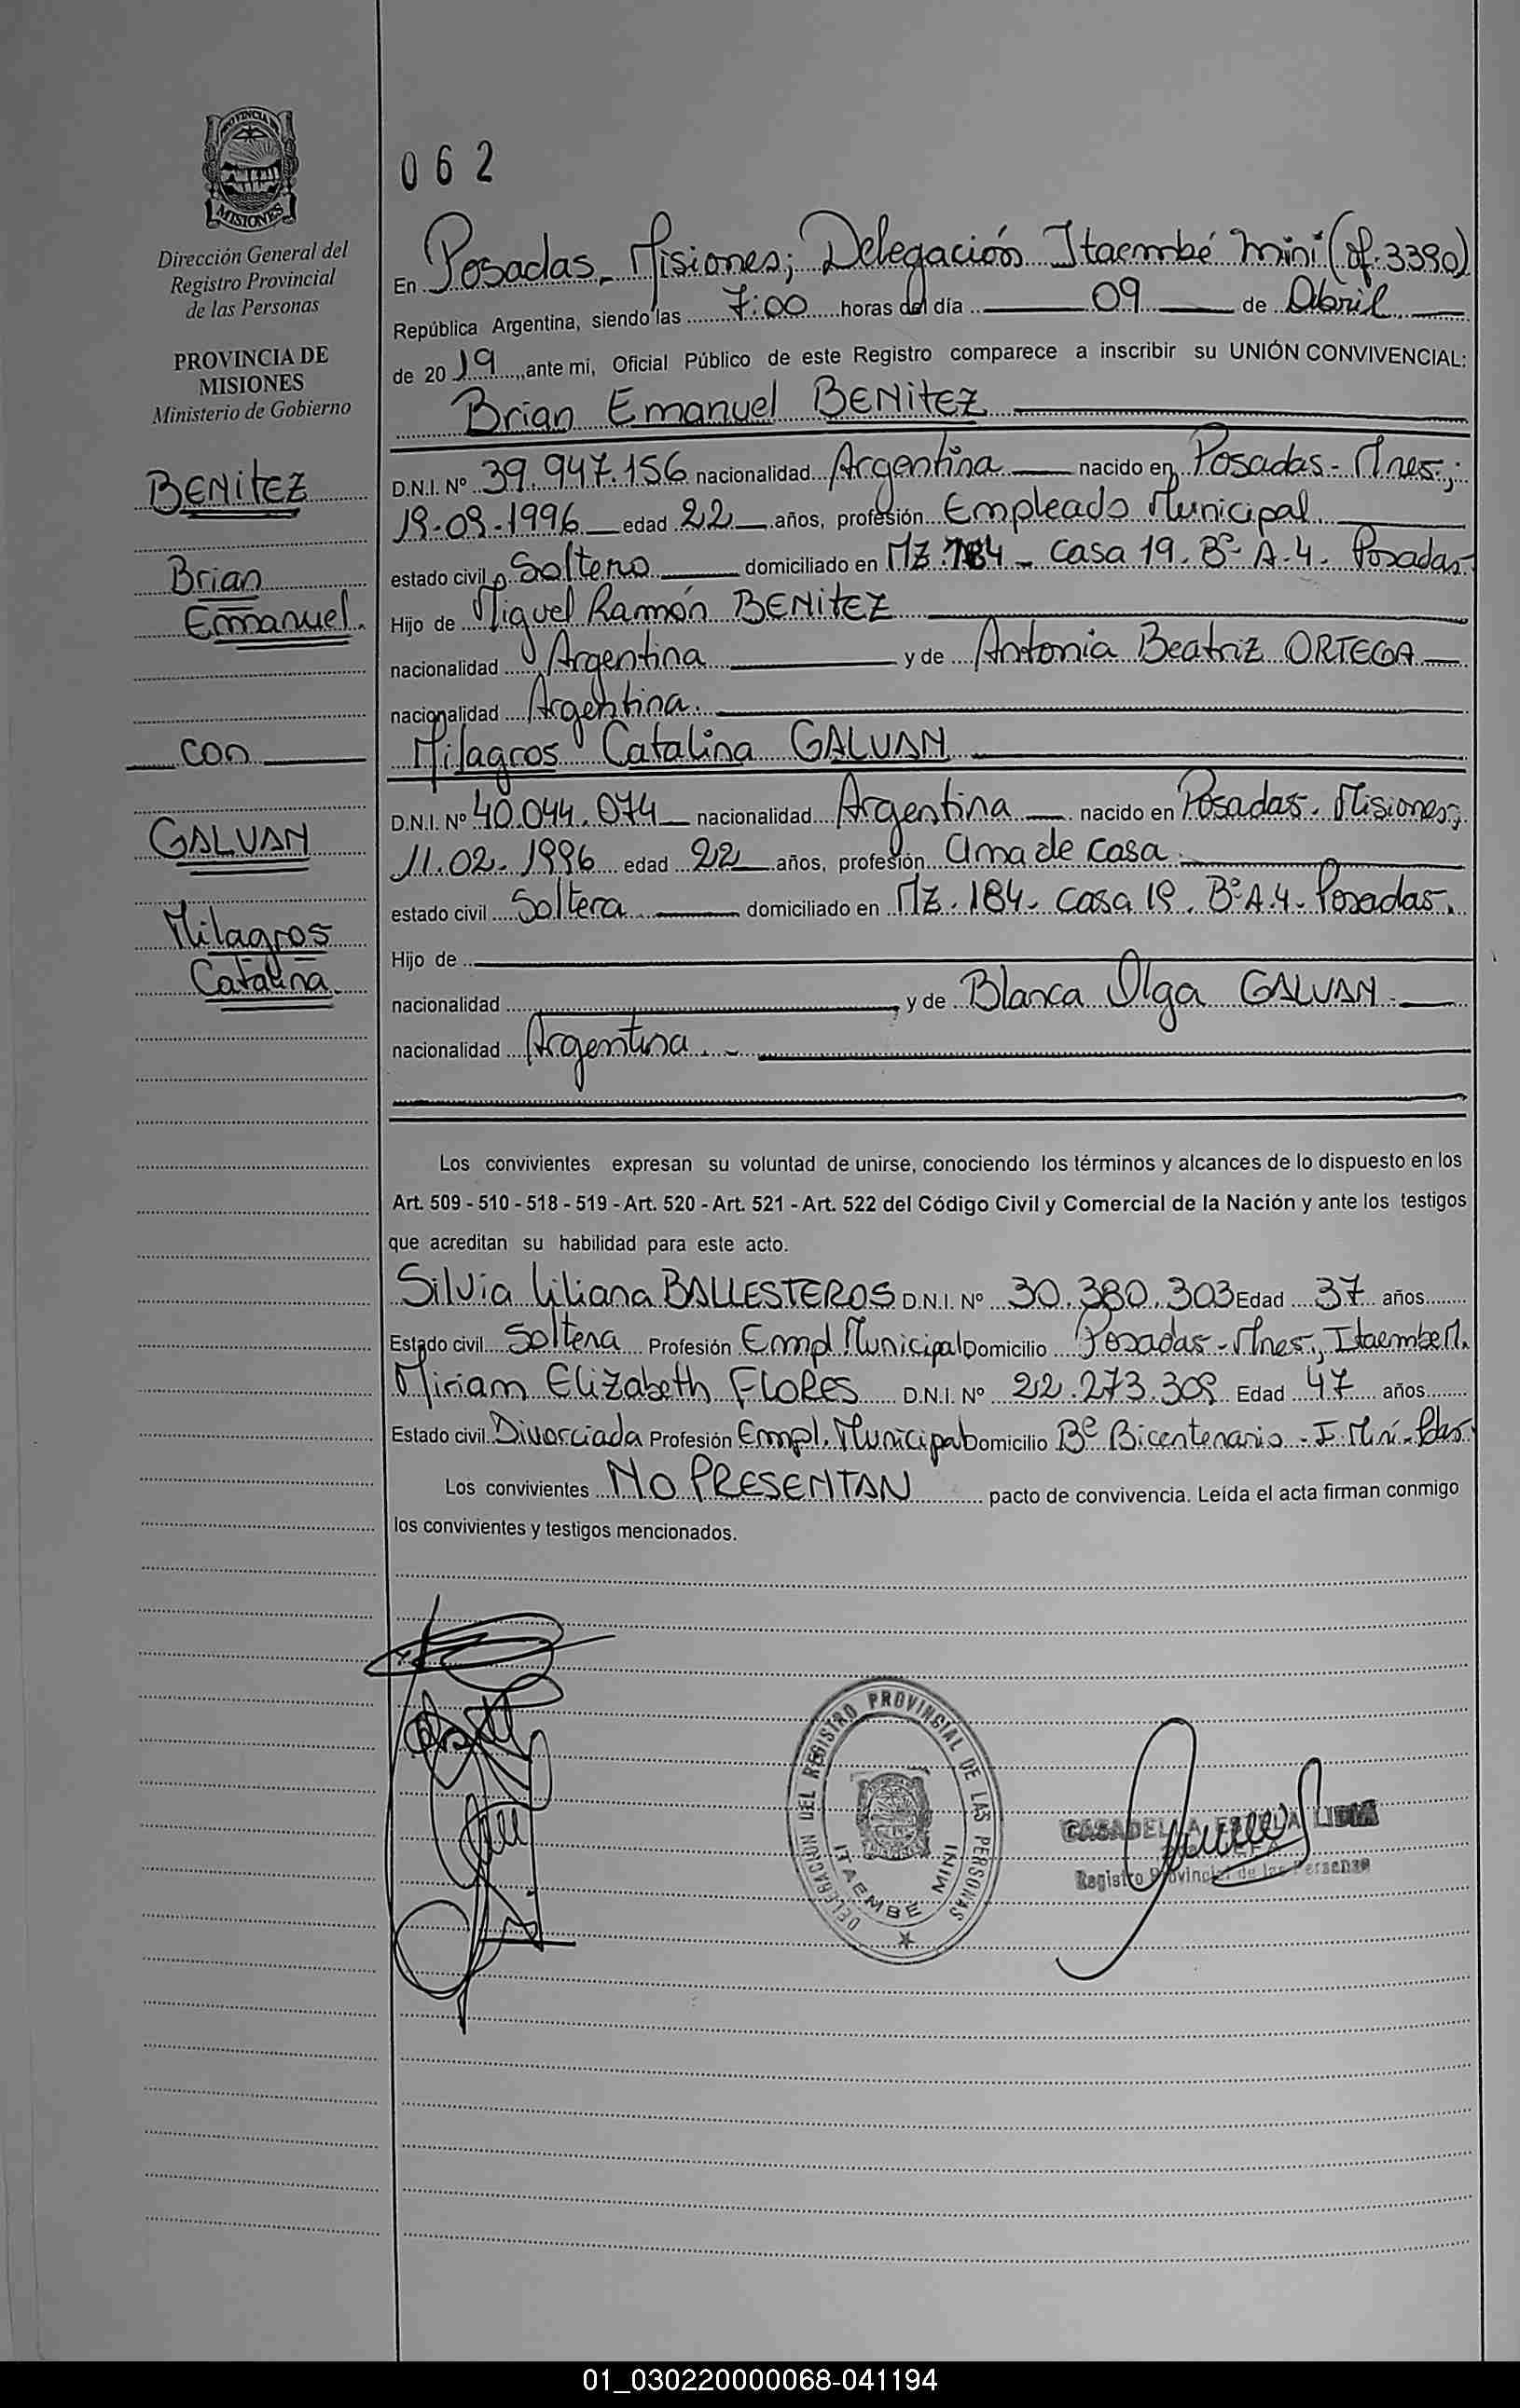 PROVINCIA DE
MISIONES
Dirección General del
Registro Provincial
de las Personas
PROVINCIA DE
MISIONES
Ministerio de Gobierno
BENITEZ
Brian
Emanuel.
con
GALVAN
Milagros
Catalina.
062
En Posadas - Misiones; Delegación Itaembé Miní (of. 3390)
República Argentina, siendo las 7:00 horas del día 09 de Abril
de 2019, ante mi, Oficial Público de este Registro comparece a inscribir su UNIÓN CONVIVENCIAL:
Brian Emanuel BENITEZ
D.N.I. Nº 39.947.156 nacionalidad Argentina nacido en Posadas - Mnes.;
19-09-1996 edad 22 años, profesión Empleado Municipal
estado civil Soltero domiciliado en MZ. 184 - Casa 19. Bº A-4. Posadas.
Hijo de Miguel Ramón BENITEZ
nacionalidad Argentina y de Antonia Beatriz ORTEGA
nacionalidad Argentina.
Milagros Catalina GALVAN
D.N.I. Nº 40.044.074 nacionalidad Argentina nacido en Posadas. Misiones;
11.02.1996 edad 22 años, profesión ama de casa.
estado civil Soltera. domiciliado en MZ. 184. casa 19. Bº A.4. Posadas.
Hijo de
nacionalidad , y de Blanca Olga GALVAN.
nacionalidad Argentina.
Los convivientes expresan su voluntad de unirse, conociendo los términos y alcances de lo dispuesto en los
Art. 509 - 510 - 518 - 519 - Art. 520 - Art. 521 - Art. 522 del Código Civil y Comercial de la Nación y ante los testigos
que acreditan su habilidad para este acto.
Silvia Liliana BALLESTEROS D.N.I. Nº 30.380.303 Edad 37 años
Estado civil Soltera Profesión Empl Municipal Domicilio Posadas - Mnes., Itaembe M.
Miriam Elizabeth FLORES D.N.I. Nº 22.273.309 Edad 47 años
Estado civil Divorciada Profesión Empl. Municipal Domicilio Bº Bicentenario - I. Miní - Pdas.
Los convivientes NO PRESENTAN pacto de convivencia. Leída el acta firman conmigo
los convivientes y testigos mencionados.
DELEGACION DEL REGISTRO PROVINCIAL DE LAS PERSONAS
ITAEMBE MINI
LIDIA
Registro Provincial de las Personas
01_030220000068-041194